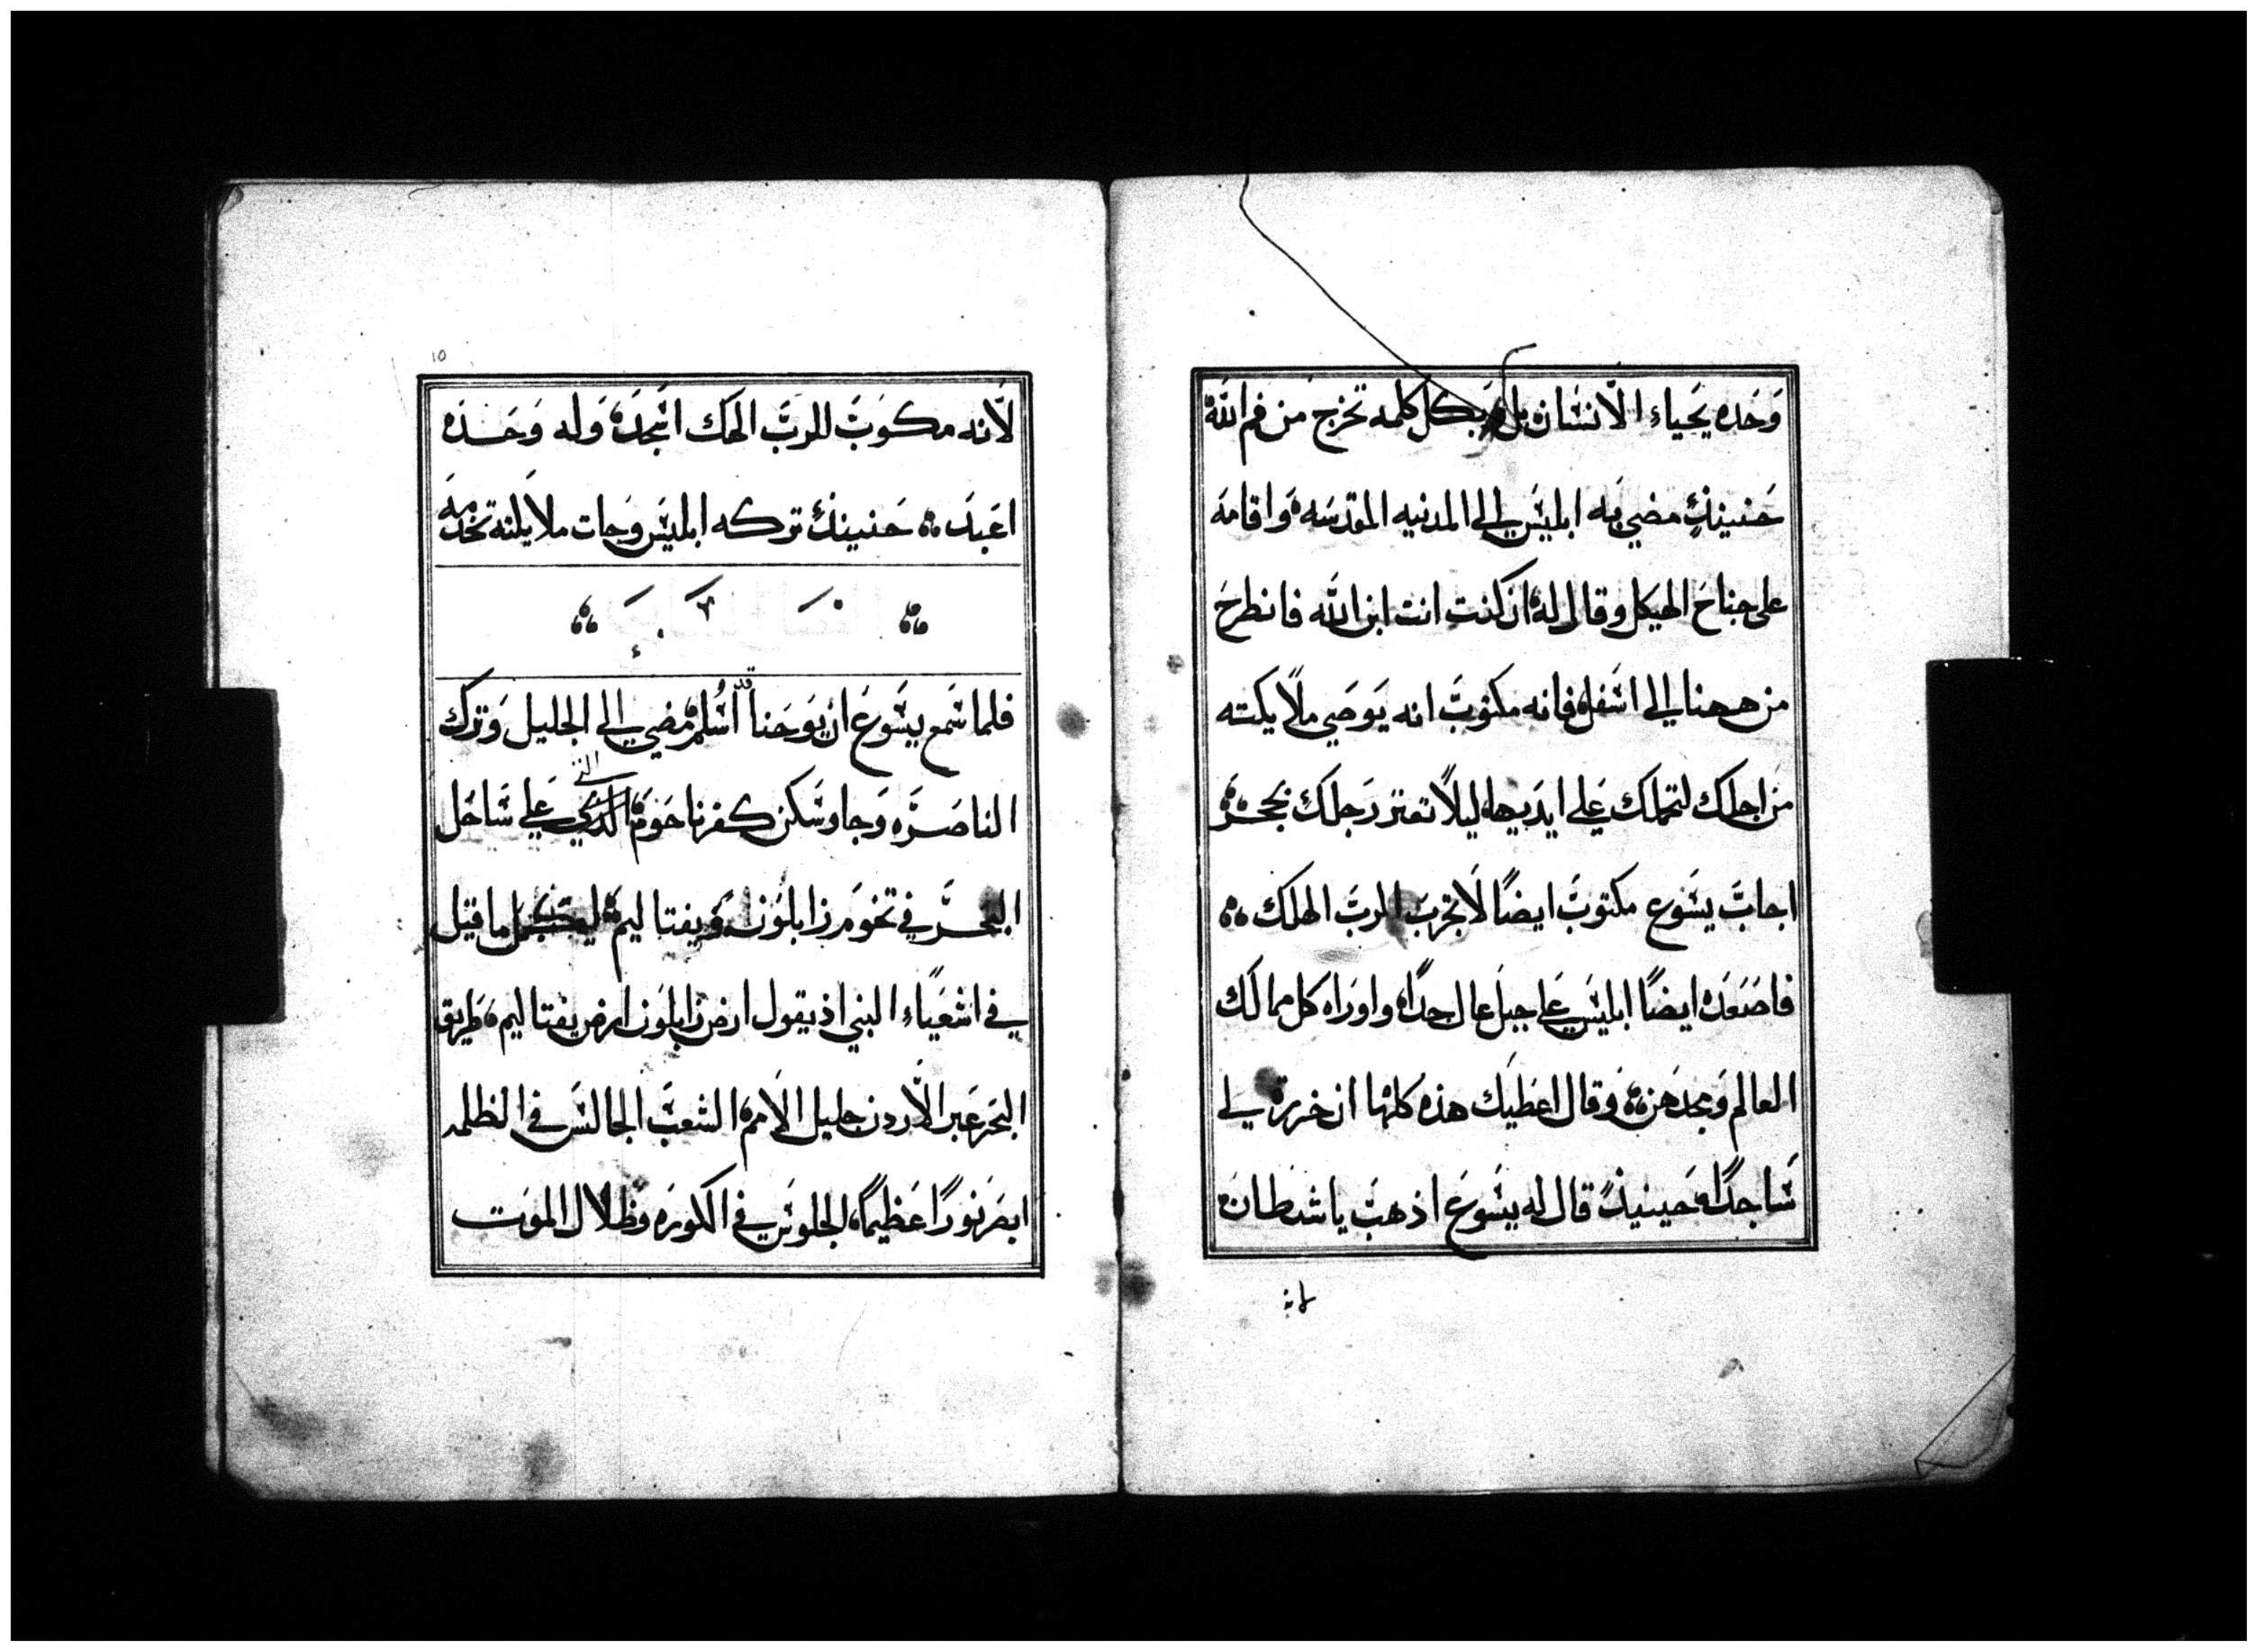 وَحَده يَحياء الاّنسَان بل وَبكل كلمه تخرج مَن فم الله
حَنينيذٍ مضي به ابليسَ الي المدنيه المقدسَه وَاقامَه
على جناحَ الهيكل وقال له ان كنت انت ابن الله فانطرحَ
من ههنا الي اسَفل فانه مكتوبَ انه يَوصَي ملاًيكته
مَن اجلك لتحملك عَلي ايديهاه ليلاً تعتر رَجلك بحجرَ
اجابَ يسَوع مكتوبَ ايضاً لاَ تجرَبَ الربَ الهلك
فاصَعَده ايضاً ابليسَ عَلي جبل عال جداً واورَاه كل ممالك
العالم وَمجدَهن وَقال اعَطيَك هذه كلها ان خررة لي
سَاجداً حَينيذً قال له يسَوعَ اذهبَ ياشَطان
لانه
١٥
لاّنه مكوبَ للربَ الهك اسَجدَه وَله وَحَده
اعَبدَ حَنينيذٍ تركه ابليسَ وجات ملاَيكته تخدمه
فلما سَمع يسَوعَ ان يوَحَنا قد اسُلم مضي الي الجليل وَترك
الناصَرَه وَجا وسَكن كفرناحَوم التي عَلي سَاحَل
البحَر في تخومَ زابلوُن وَيفتاليم ليتكمل ما قيل
في اشَعيَاء البني اذ يقول ارض زابلوَن ارض يفتاليم طَريق
البحَر عَبر الاّردن جليل الاَمم الشعبَ الجالسَ في الظلمه
ابصَر نورَاً عَظيماً الجلوسَ في الكورَه وَظلال الموَت